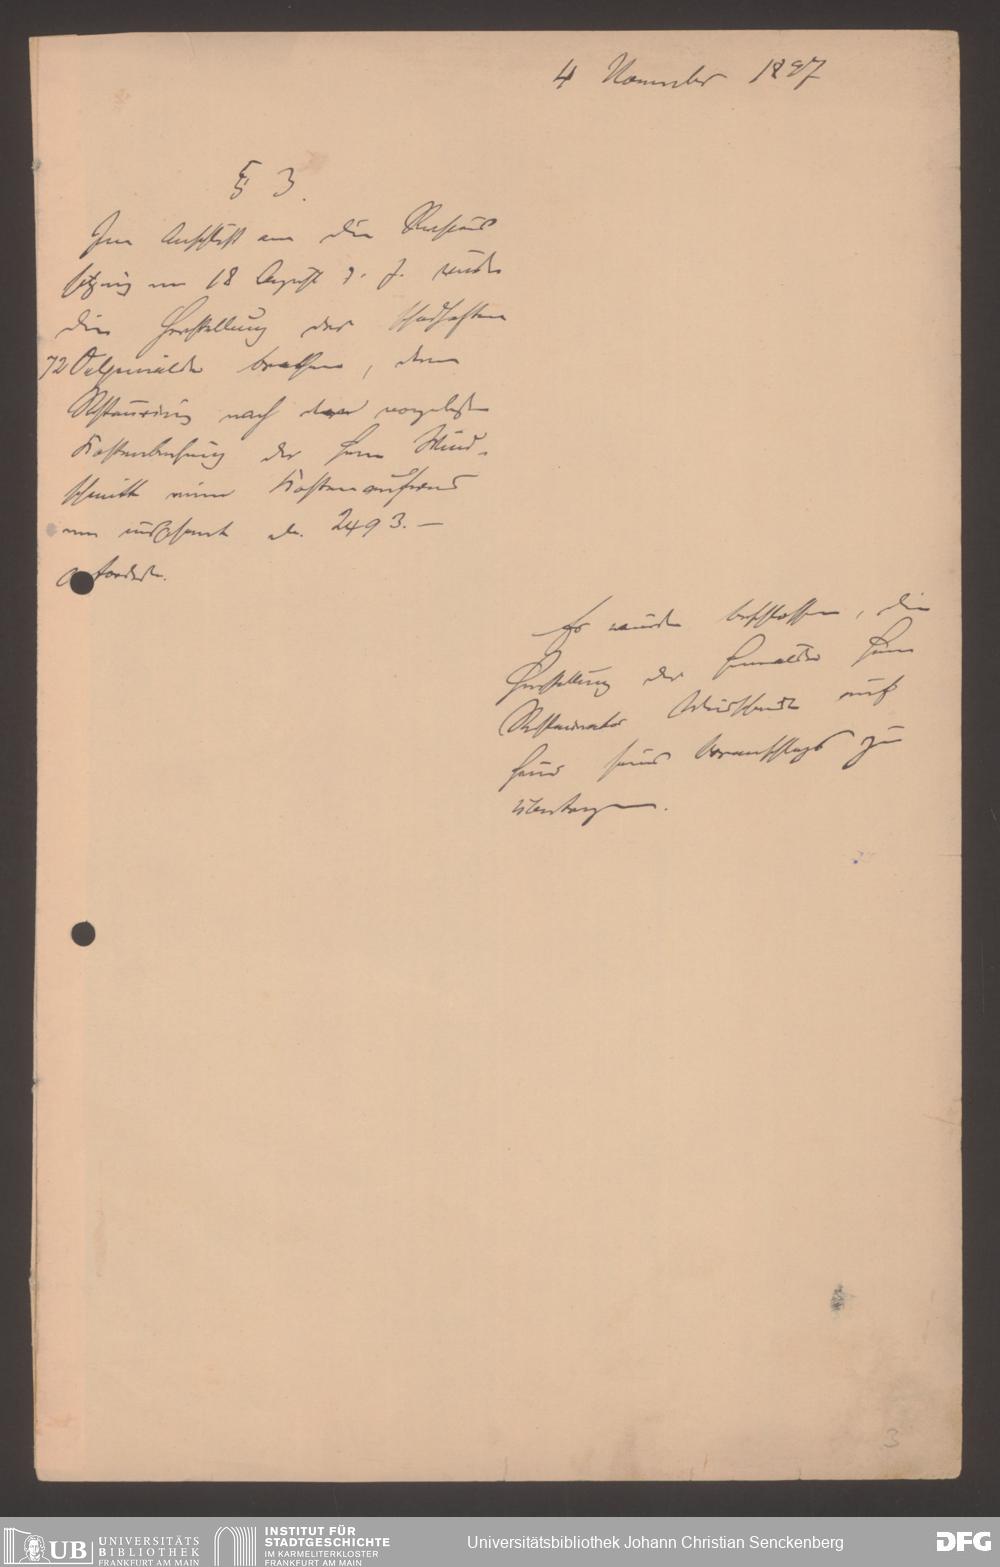 4 November 1897
§ 3.
Im Anschluß an die
sitzung vom 18 August d. J. wurde
die Herstellung der schadhaften
72 Oelgemälde berathen, deren
Restaurirung nach dem vorgelegten
Kostenberechnung des Herrn Wind-
schmitt einen Kostenaufwand
von insgesamt M. 2493.—
erfordert.
Es wurde beschlossen, die
Herstellung der Gemälde Herrn
Restaurator Windschmitt auf
Grund seines Voranschlags zu
übertragen.
3
UB UNIVERSITÄTS
BIBLIOTHEK
FRANKFURT AM MAIN
INSTITUT FÜR
STADTGESCHICHTE
IM KARMELITERKLOSTER
FRANKFURT AM MAIN
Universitätsbibliothek Johann Christian Senckenberg
DFG